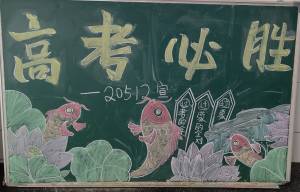 高考必胜
—20512宣